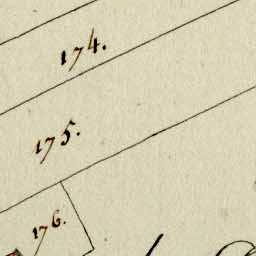 174.
175.
176.